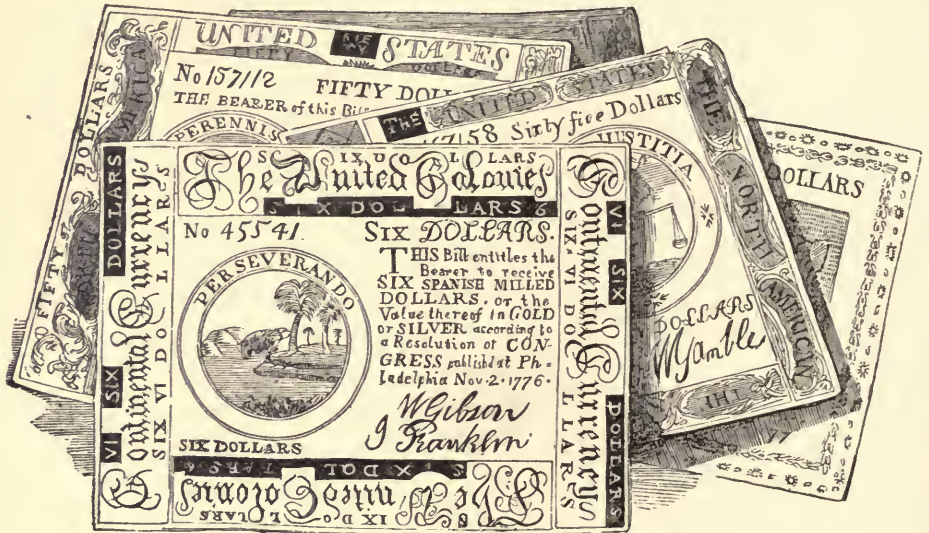 UNITED STATES
FIFTY DOLLARS
No 157112
FIFTY DOLL
THE BEARER of this Bill
PERENNIS
FIFTY
DOLLARS
NORTH AMERICA
THE UNITED STATES
67158 Sixty five Dollars
JUSTITIA
THE
NORTH
AMERICAN
DOLLARS
WGamble
THI
DOLLARS
SIX DOLLARS
The United Colonies
SIX DOLLARS 6
No 45541.
SIX DOLLARS.
THIS Bill entitles the
Bearer to receive
SIX SPANISH MILLED
DOLLARS, or the
Value thereof in GOLD
or SILVER according to
a Resolution of CON-
GRESS published at Ph-
ladelphia Nov. 2. 1776.
PERSEVERANDO
WGibson
J Franklin
SIX DOLLARS
VI SIX DOLLARS
Continental Currency
SIX VI DOLLARS
Continental Currency
SIX VI DOLLARS
VI SIX DOLLARS
SIX DOLLARS
The United Colonies
SIX DOLLARS